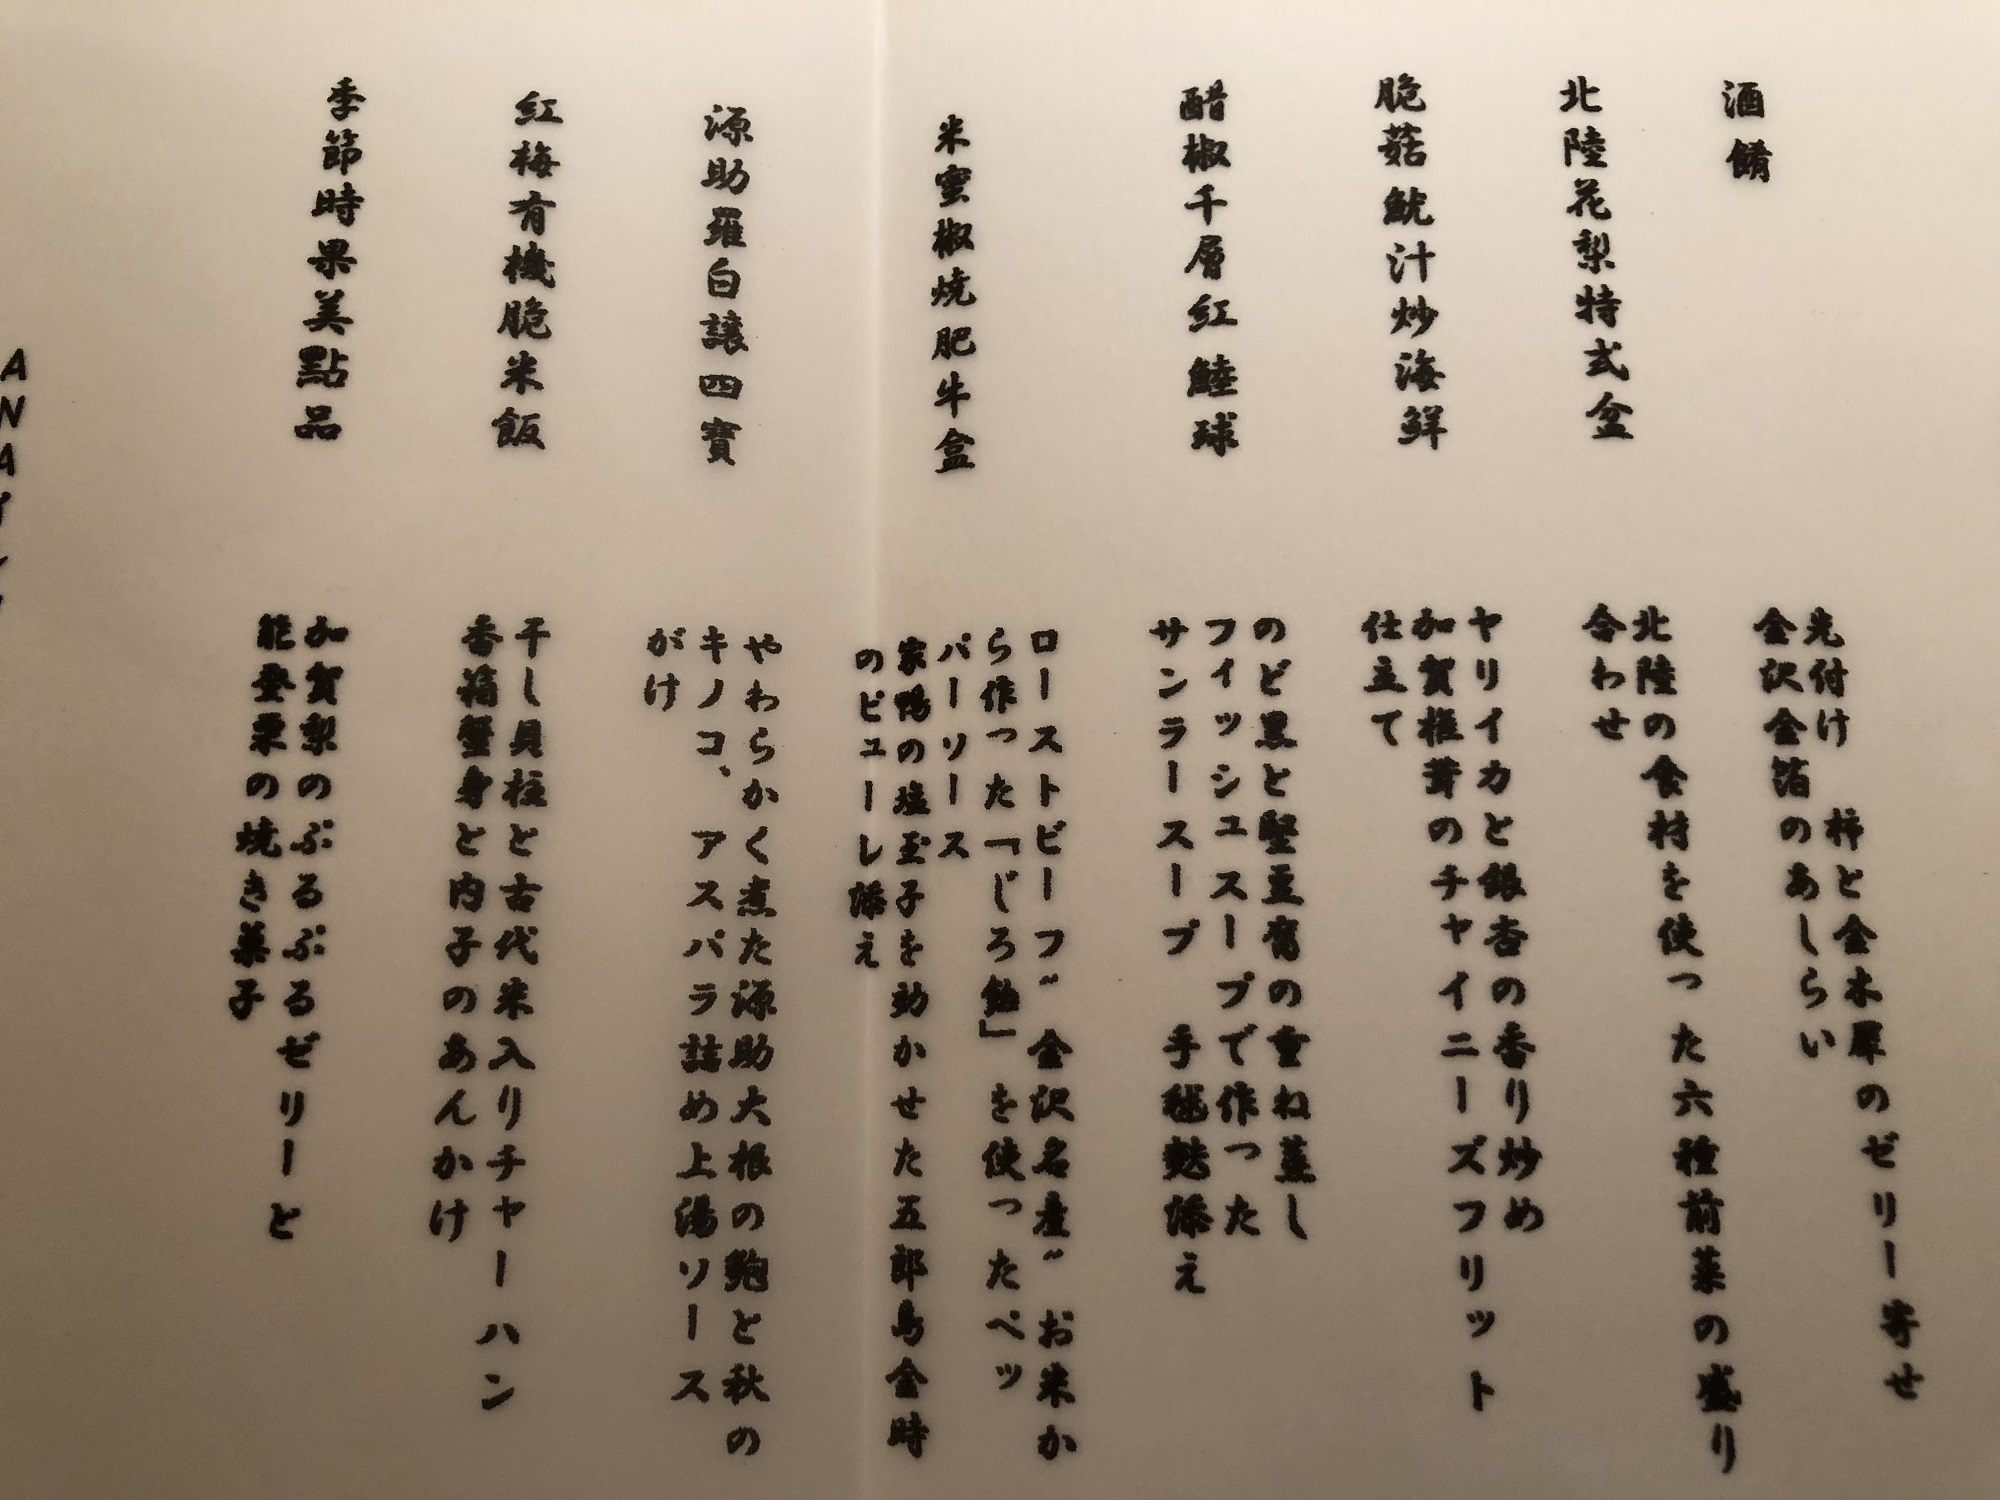 酒餚
先付け　柿と金木犀のゼリー寄せ
金沢金箔のあしらい
北陸花梨特式盆
北陸の食材を使った六種前菜の盛り
合わせ
脆菇魷汁炒海鮮
ヤリイカと銀杏の香り炒め
加賀椎茸のチャイニーズフリット
仕立て
醋椒千層紅鯥球
のど黒と堅豆腐の重ね蒸し
フィッシュスープで作った
サンラースープ　手毬麩添え
米蜜椒焼肥牛盒
ローストビーフ〝金沢名産〟お米か
ら作った「じろ飴」を使ったペッ
パーソース
家鴨の塩玉子を効かせた五郎島金時
のピューレ添え
源助羅白譲四寶
やわらかく煮た源助大根の鮑と秋の
キノコ、アスパラ詰め上湯ソース
がけ
紅梅有機脆米飯
干し貝柱と古代米入りチャーハン
香箱蟹身と内子のあんかけ
季節時果美點品
加賀梨のぷるぷるゼリーと
能登栗の焼き菓子
ANA